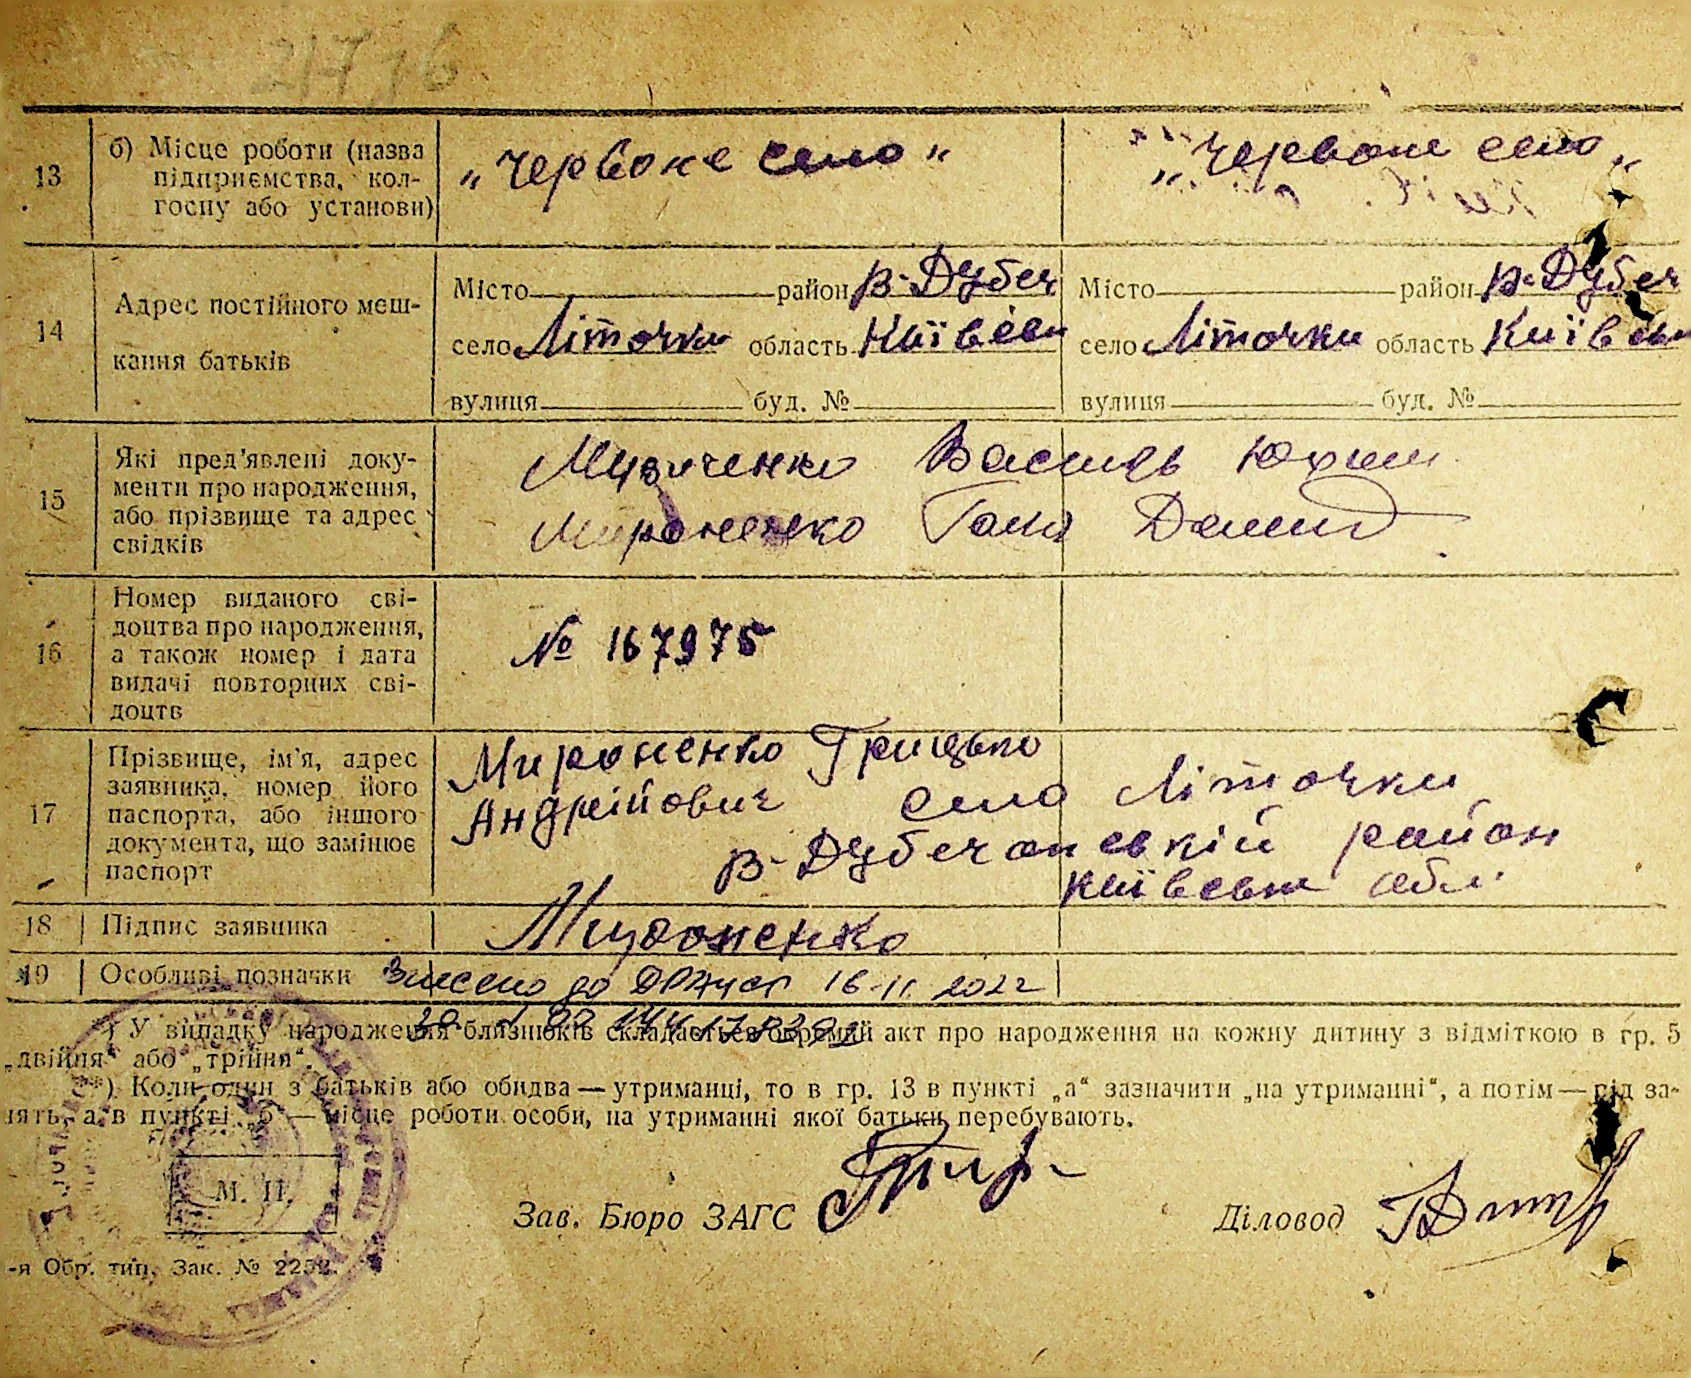 13
б) Місце роботи (назва
підприємства, кол-
госпу або установи)
„Червоне село"
„Червоне село"
14
Адрес постійного меш-
кання батьків
Місто район В-Дубеч
село Літочки область Київськ
вулиця буд. №
Місто район В-Дубеч
село Літочки область Київськ
вулиця буд. №
15
Які пред'явлені доку-
менти про народження,
або прізвище та адрес
свідків
Музиченко Василь Юхим
Мироненко Галя Демид
16
Номер виданого сві-
доцтва про народження,
а також номер і дата
видачі повторних сві-
доцтв
№ 167975
17
Прізвище, ім'я, адрес
заявника, номер його
паспорта, або іншого
документа, що замінює
паспорт
Мироненко Грицько
Андрійович село Літочки
В-Дубечанський район
Київськ обл.
18 Підпис заявника
Мироненко
19 Особливі позначки Внесено до ДРАЦСГ 16.11.2022
*) У випадку народження близнюків складається окремий акт про народження на кожну дитину з відміткою в гр. 5
„двійня" або „трійня".
**) Коли один з батьків або обидва — утриманці, то в гр. 13 в пункті „а" зазначити „на утриманні", а потім — рід за-
нять, а в пункті „б" — місце роботи особи, на утриманні якої батьки перебувають.
М. П.
Зав. Бюро ЗАГС
Діловод
-я Обр. тип. Зак. № 2252.